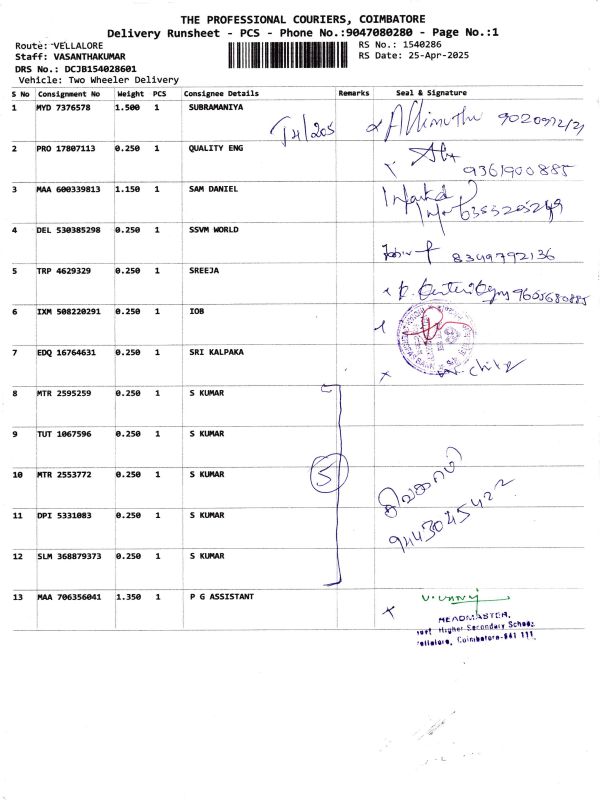 THE PROFESSIONAL COURIERS, COIMBATORE
Delivery Runsheet - PCS - Phone No.:9047080280 - Page No.:1
Route: VELLALORE RS No.: 1540286
Staff: VASANTHAKUMAR RS Date: 25-Apr-2025
DRS No.: DCJB154028601
Vehicle: Two Wheeler Delivery
S No Consignment No Weight PCS Consignee Details Remarks Seal & Signature
1 MYD 7376578 1.500 1 SUBRAMANIYA
2 PRO 17807113 0.250 1 QUALITY ENG
9361900885
3 MAA 600339813 1.150 1 SAM DANIEL
4 DEL 530385298 0.250 1 SSVM WORLD
8349792136
5 TRP 4629329 0.250 1 SREEJA
9605680885
6 IXM 508220291 0.250 1 IOB
7 EDQ 16764631 0.250 1 SRI KALPAKA
8 MTR 2595259 0.250 1 S KUMAR
9 TUT 1067596 0.250 1 S KUMAR
10 MTR 2553772 0.250 1 S KUMAR 5
சிவகாமி
11 DPI 5331083 0.250 1 S KUMAR
9443045422
12 SLM 368879373 0.250 1 S KUMAR
13 MAA 706356041 1.350 1 P G ASSISTANT
HEADMASTER,
Higher Secondary School,
Coimbatore-641 111.